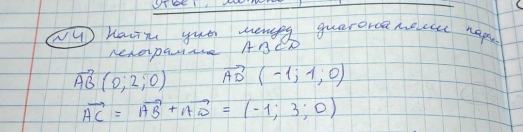 №4 Найти углы между диагоналями парал-
лелограмма ABCD
AB (0; 2; 0) AD (-1; 1; 0)
AC = AB + AD = (-1; 3; 0)